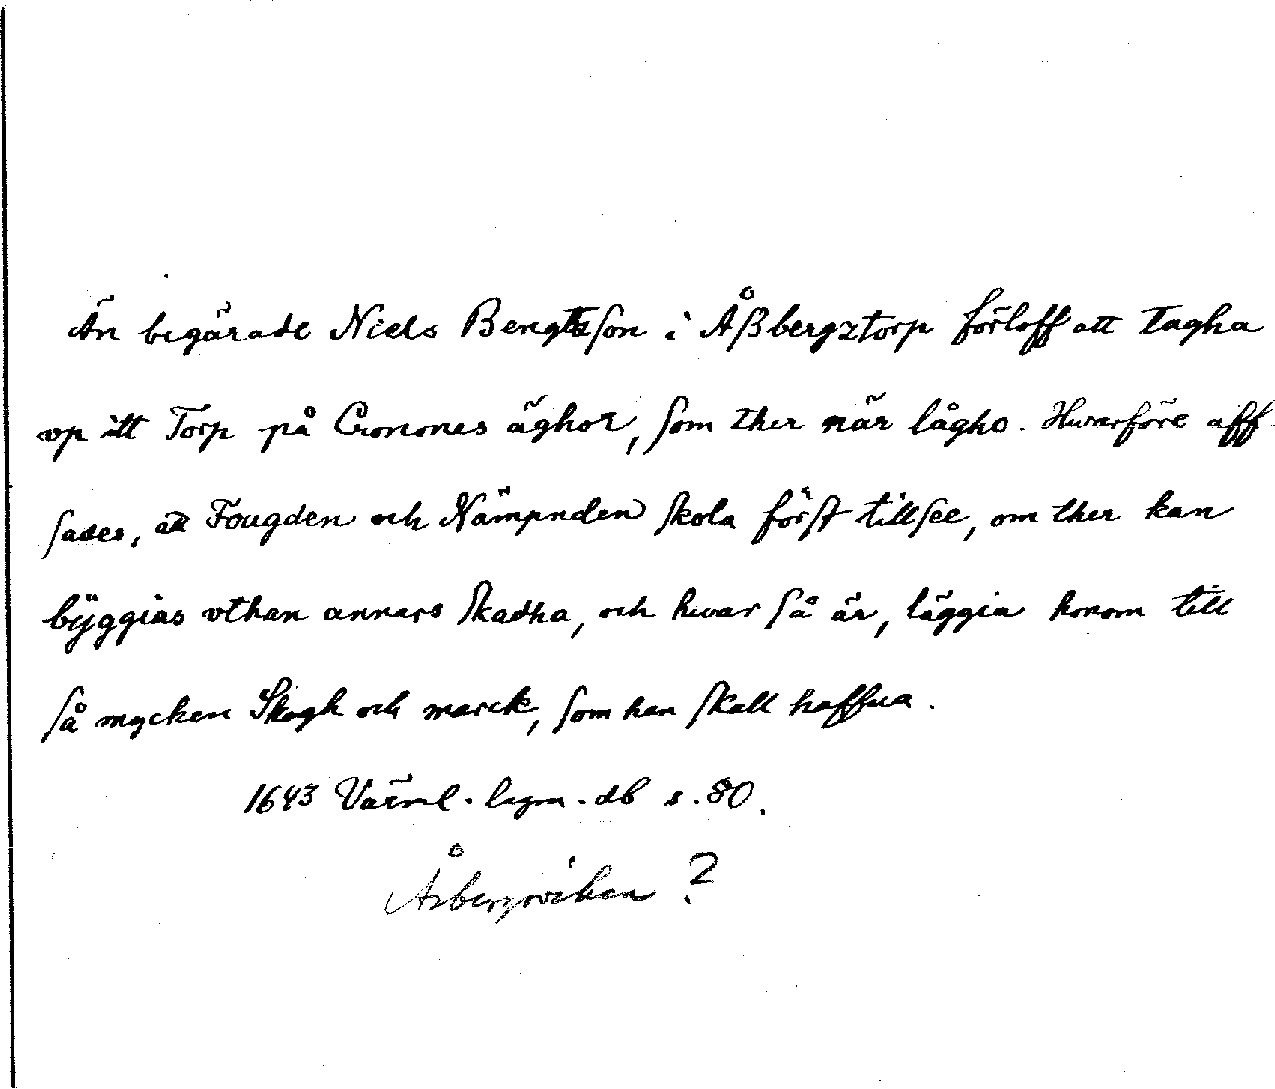 Än begärade Niels Bengtsson i Åßbergztorp förloff att Tagha
vp itt Torp på Cronones äghor, som ther när lågho. Huarföre aff-
sades, att Fougden och Nämpnden skola först tillsee, om ther kan
byggias vthan annars skadha, och hwar så är, läggia honom till
så mycken Skogh och marck, som han skall haffua.
1643 Värml. lagm. db s. 80.
Åsbergsviken?